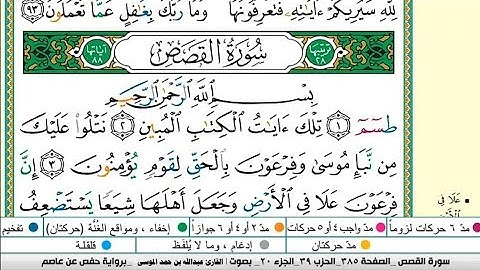 لِلَّهِ سَيُرِيكُمْ ءَايَٰتِهِۦ فَتَعْرِفُونَهَا ۚ وَمَا رَبُّكَ بِغَٰفِلٍ عَمَّا تَعْمَلُونَ ٩٣
ترتيبها ٢٨ سُورَةُ القَصَصِ آياتها ٨٨
بِسْمِ ٱللَّهِ ٱلرَّحْمَٰنِ ٱلرَّحِيمِ
طسٓمٓ ١ تِلْكَ ءَايَٰتُ ٱلْكِتَٰبِ ٱلْمُبِينِ ٢ نَتْلُوا۟ عَلَيْكَ
مِن نَّبَإِ مُوسَىٰ وَفِرْعَوْنَ بِٱلْحَقِّ لِقَوْمٍ يُؤْمِنُونَ ٣ إِنَّ
فِرْعَوْنَ عَلَا فِى ٱلْأَرْضِ وَجَعَلَ أَهْلَهَا شِيَعًا يَسْتَضْعِفُ
عَلَا فِي
مدّ ٦ حركات لزوماً مدّ واجب ٤ أو ٥ حركات مدّ ٢ أو ٤ أو ٦ جوازاً إخفاء، ومواقع الغُنَّة (حركتان) تفخيم
مدّ حركتان إدغام، وما لا يُلفَظ قلقلة
سورة القصص _الصفحة ٣٨٥_الحزب ٣٩_الجزء ٢٠_ بصوت : القارئ عبدالله بن حمد الموسى _برواية حفص عن عاصم